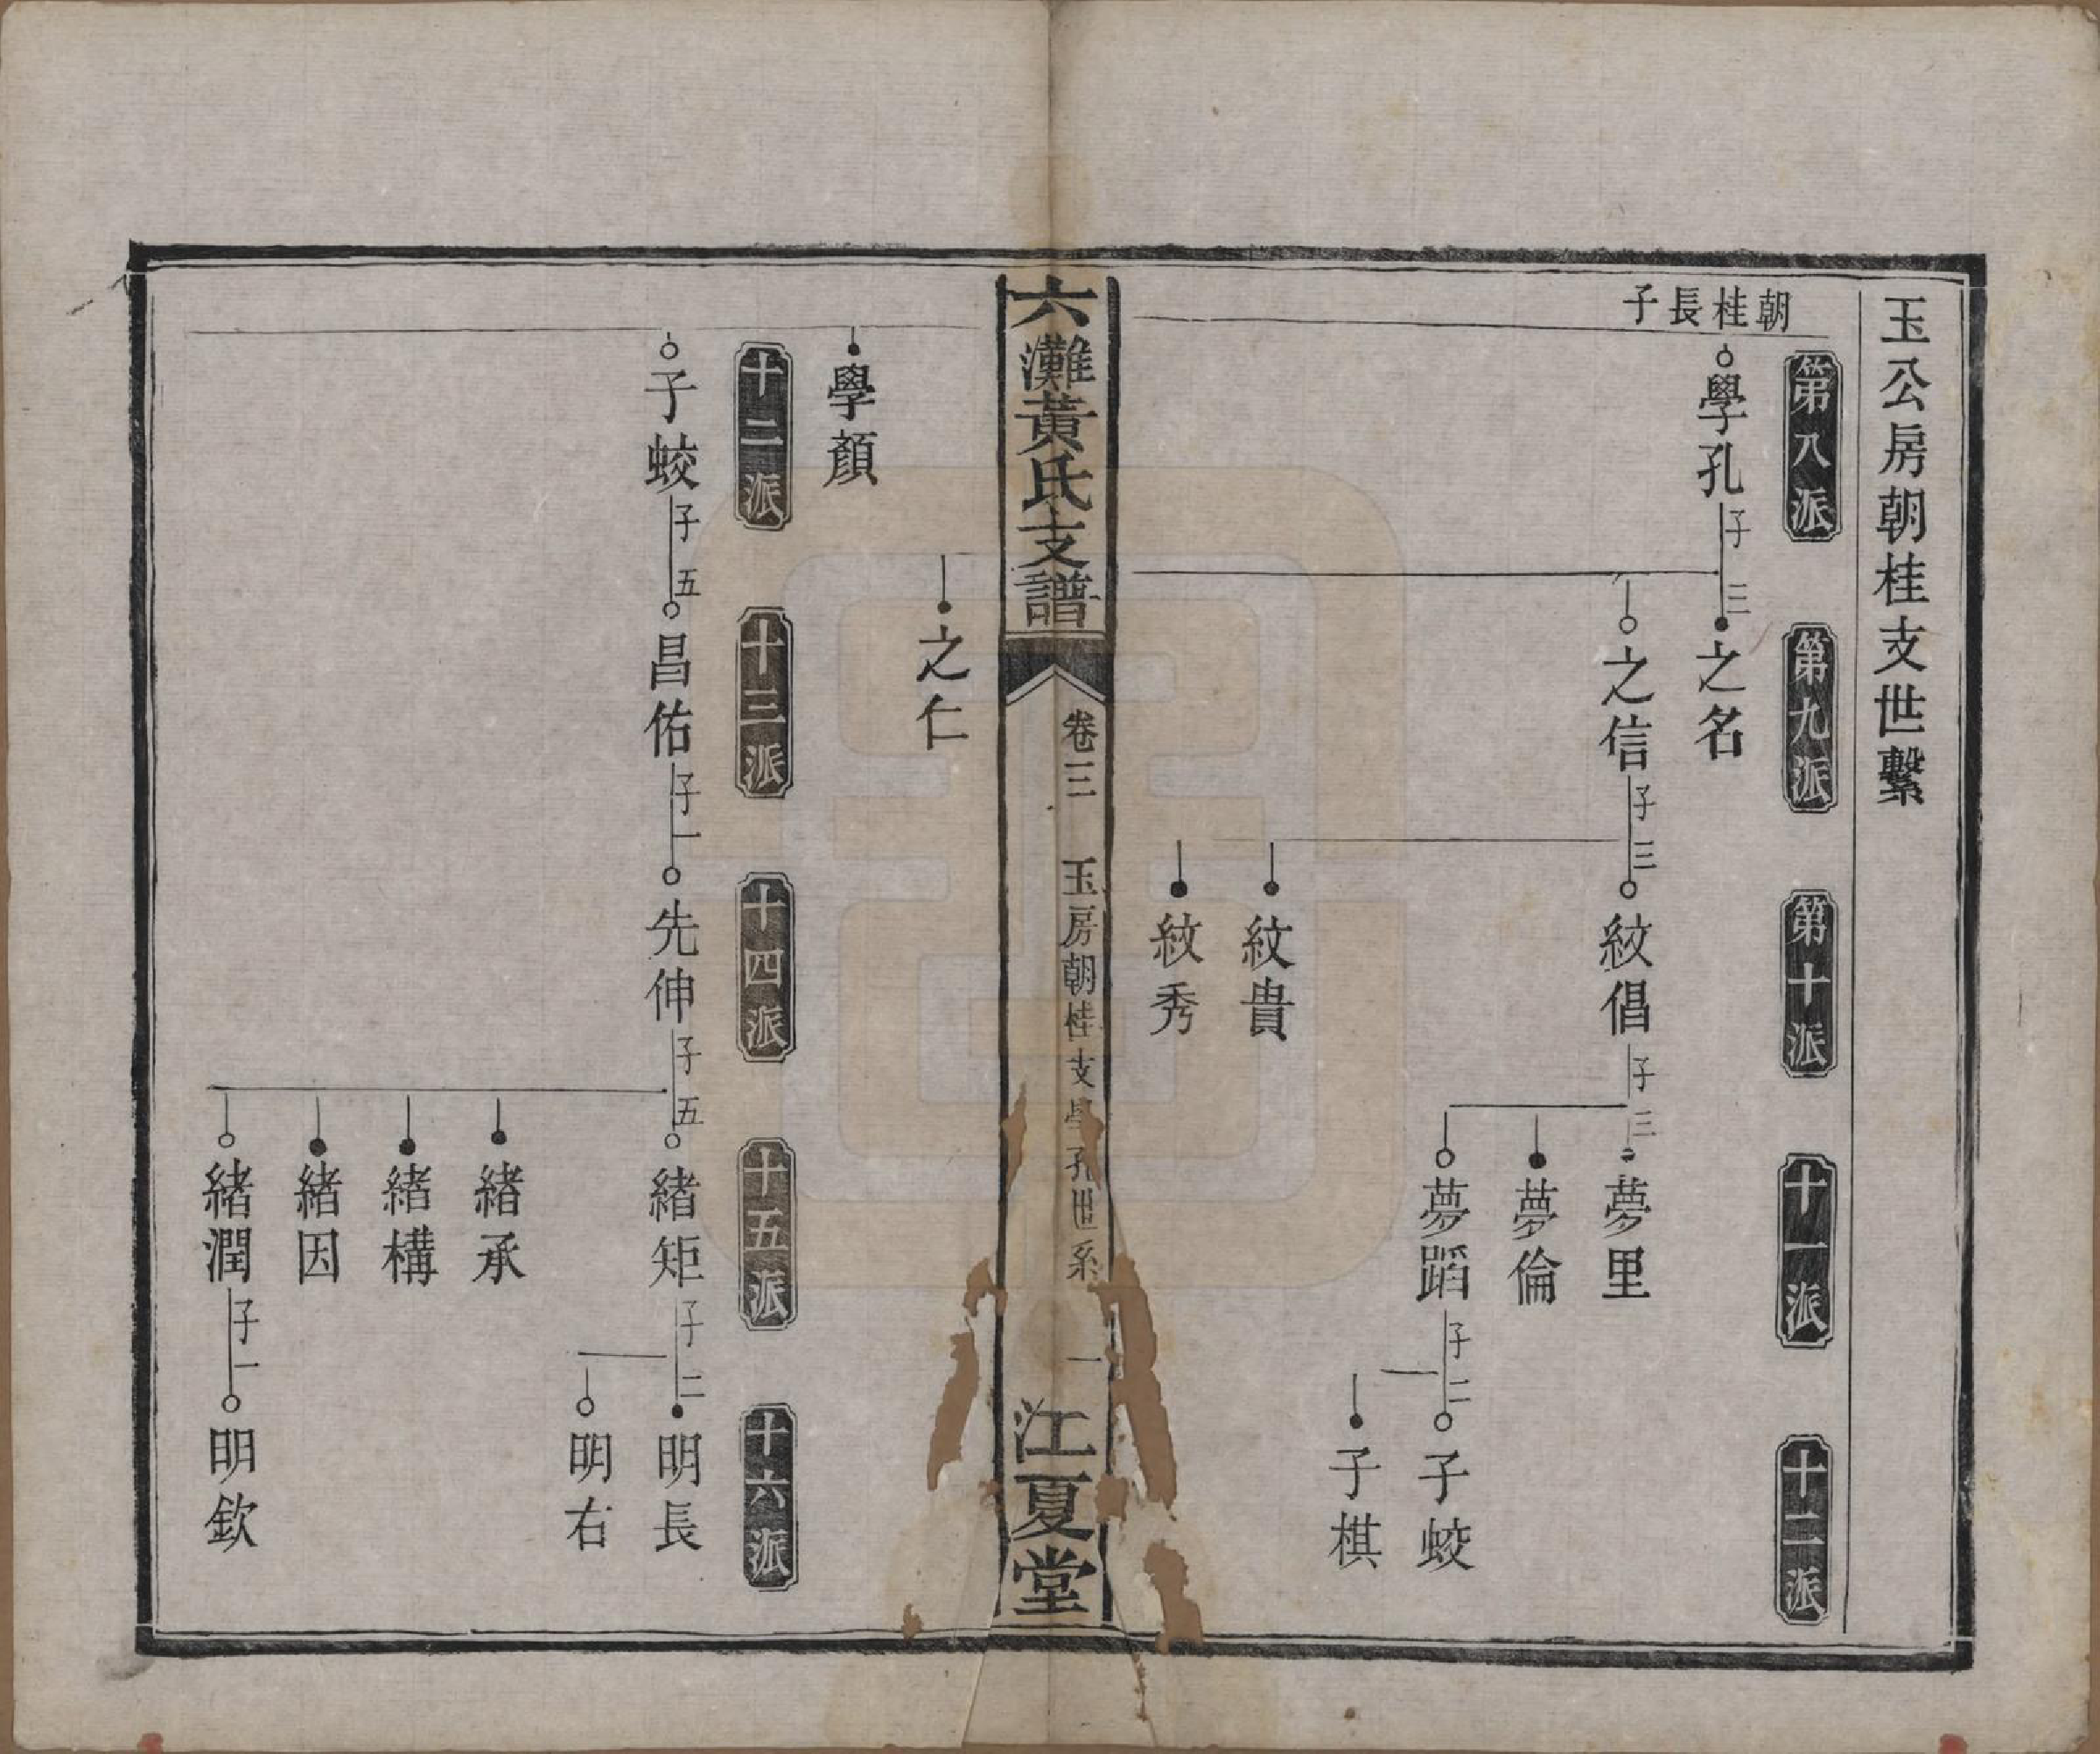 玉公房朝桂支世繫
朝桂長子
第八派
第九派
第十派
十一派
十二派
學孔
子三
之名
之信
子三
紋倡
子三
夢里
夢倫
夢蹈
子二
子蛟
子棋
紋貴
紋秀
六灘黃氏支譜
卷三
玉房朝桂支學孔世系
一
江夏堂
之仁
學顏
十二派
十三派
十四派
十五派
十六派
子蛟
子五
昌佑
子一
先伸
子五
緒矩
子二
明長
明右
緒承
緒構
緒因
緒潤
子一
明欽